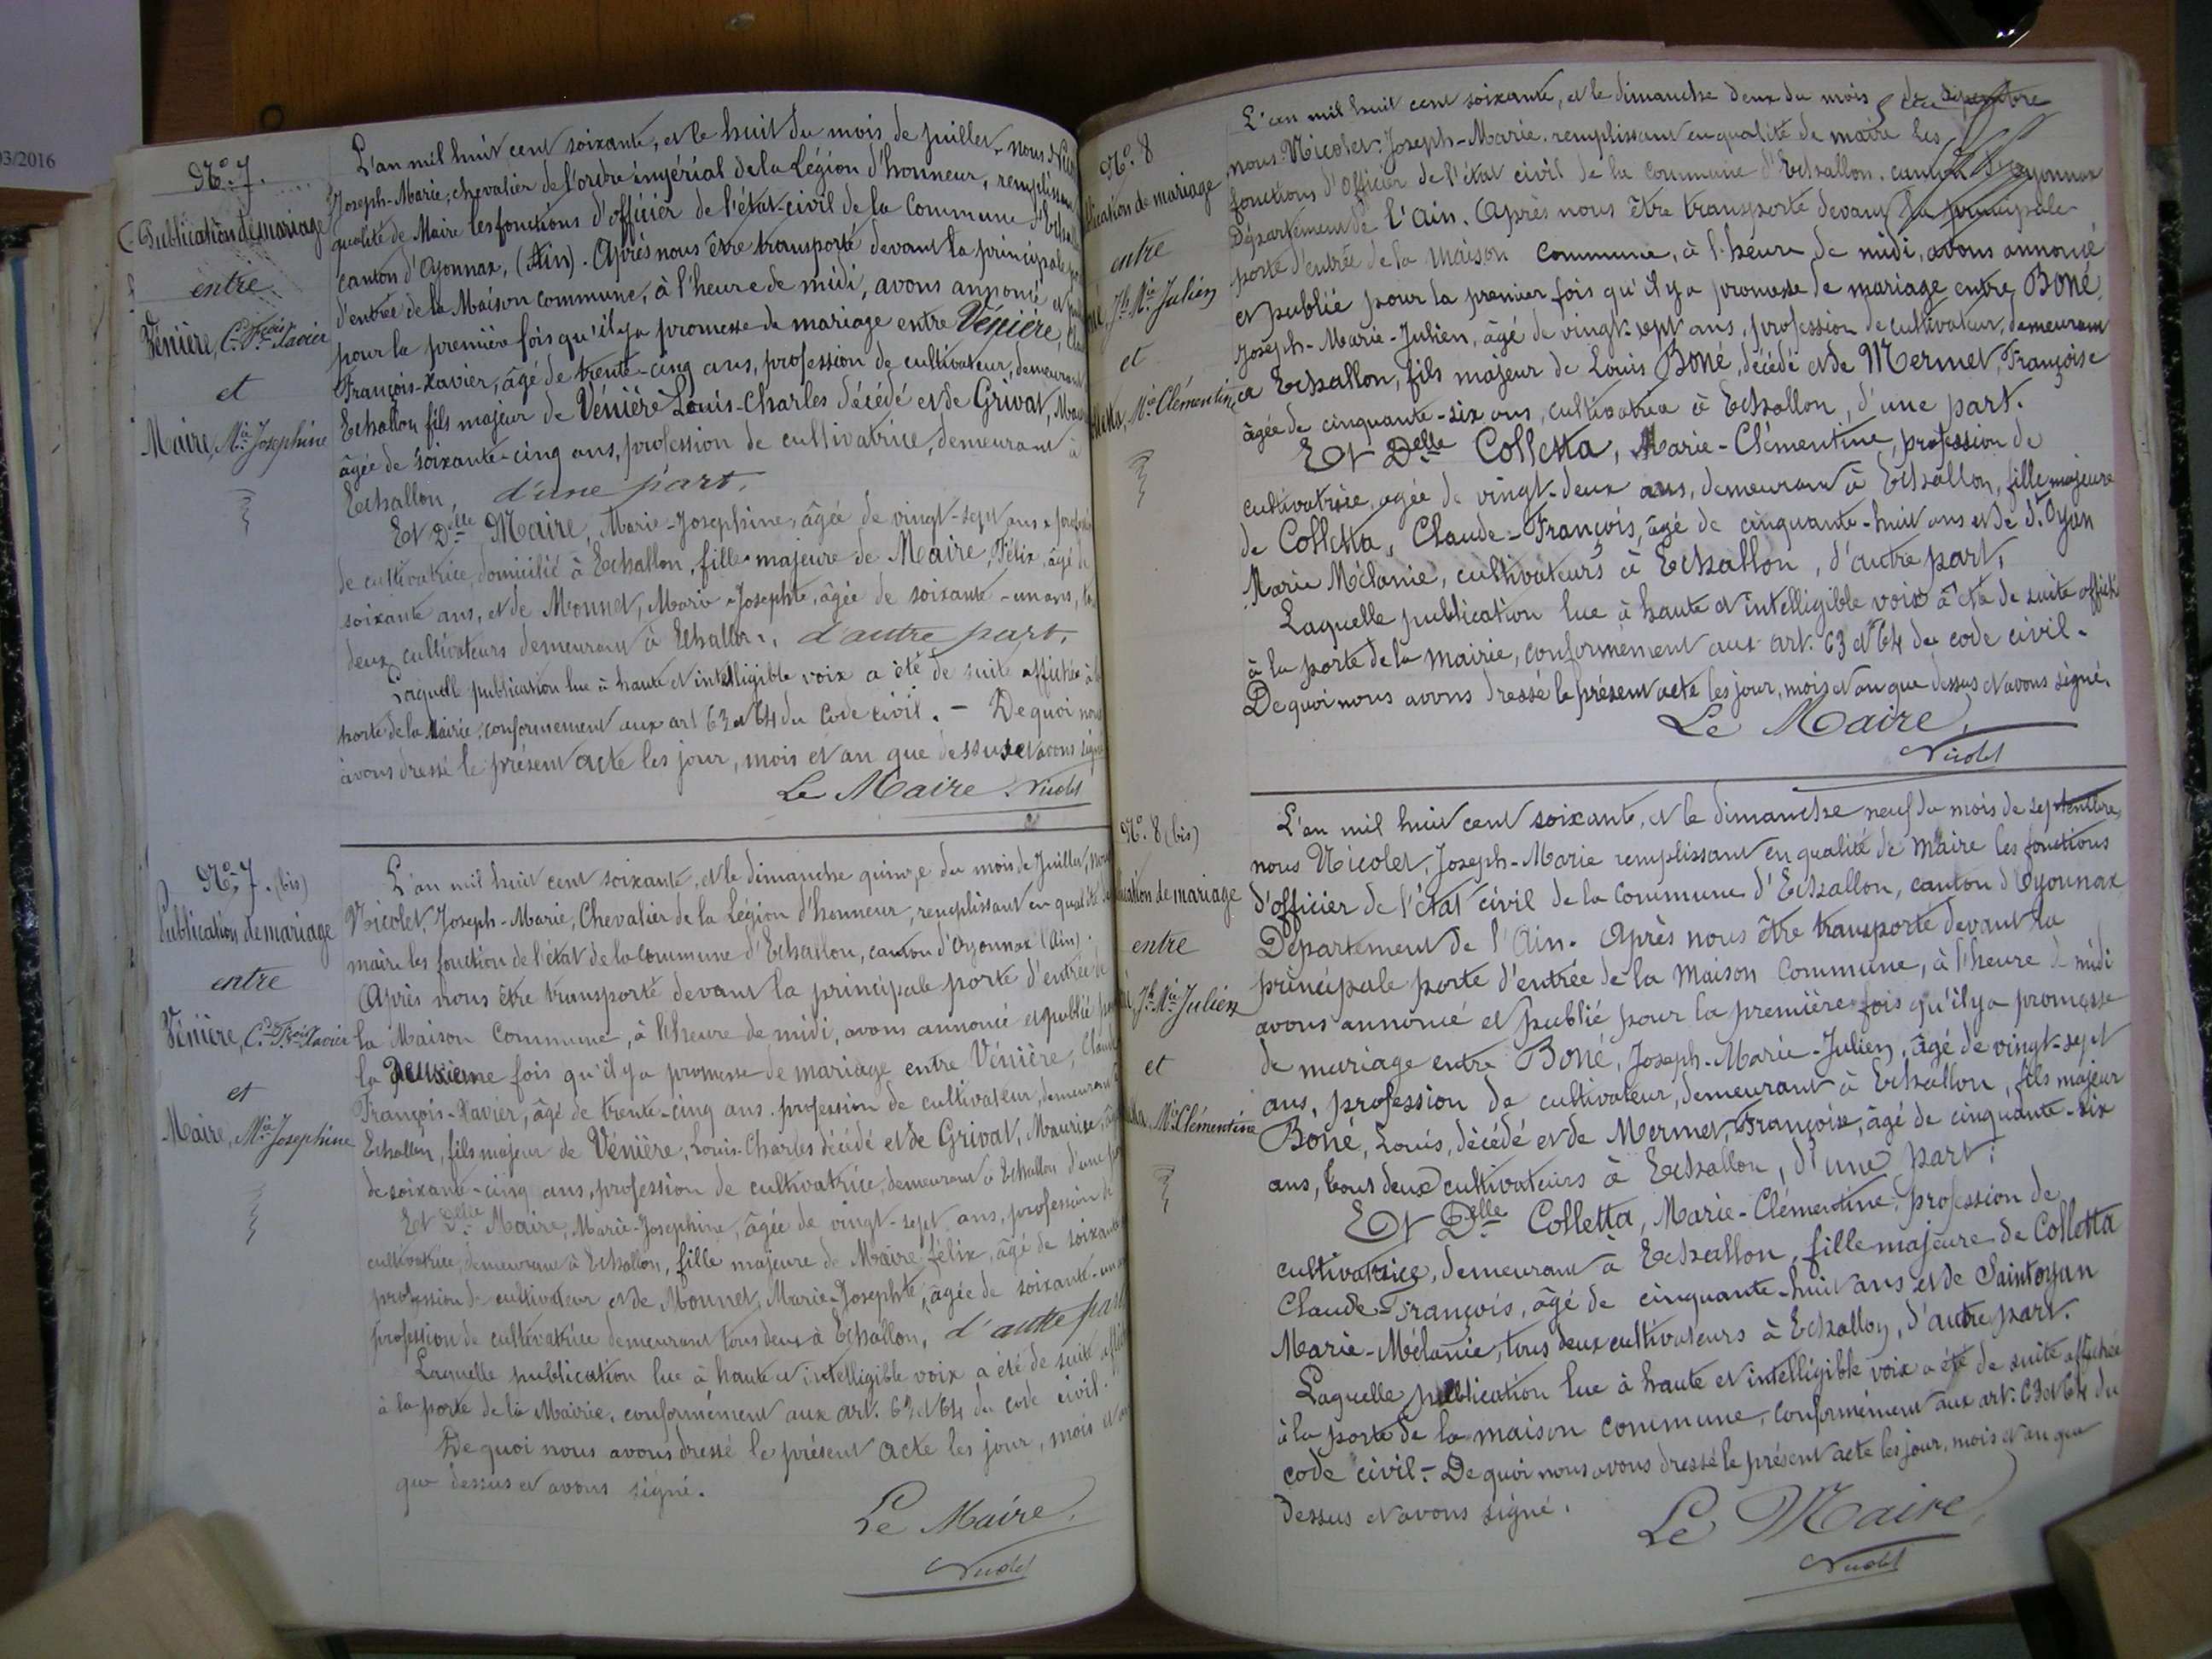 03/2016
No. 7.
Publication de mariage
entre
Vénière, C. Fcois Xavier
et
Maire, Mie Josephine
L'an mil huit cent soixante, et le huit du mois de juillet, nous
Joseph-Marie, chevalier de l'ordre impérial de la Légion d'honneur,
qualité de Maire les fonctions d'officier de l'état-civil de la Commune
canton d'Oyonnax, (Ain). Après nous être transporté devant la principale
d'entrée de la Maison commune, à l'heure de midi, avons annoncé et
pour la première fois qu'il y a promesse de mariage entre Vénière,
François-Xavier, âgé de trente-cinq ans, profession de cultivateur, demeurant
Echallon fils majeur de Vénière Louis-Charles décédé et de Grivat,
âgée de soixante-cinq ans, profession de cultivatrice, demeurant à
Echallon, d'une part.
Et Delle Maire, Marie-Josephine, âgée de vingt-sept ans,
de cultivatrice, domicilié à Echallon, fille majeure de Maire, Félix, âgé de
soixante ans, et de Monnet, Marie-Josephte, âgée de soixante-un ans,
deux cultivateurs demeurant à Echallon, d'autre part.
Laquelle publication lue à haute et intelligible voix a été de suite affichée à la
porte de la Mairie, conformement aux art 63 et 64 du Code civil. - De quoi nous
avons dressé le présent acte les jour, mois et an que dessus et avons signé
Le Maire. Nicolet
No. 7. (bis)
Publication de mariage
entre
Vénière, C. Fcois Xavier
et
Maire, Mie Josephine
L'an mil huit cent soixante, et le dimanche quinze du mois de Juillet, nous
Nicolet, Joseph-Marie, Chevalier de la Légion d'honneur, remplissant en qualité de
maire les fonction de l'état de la Commune d'Echallon, canton d'Oyonnax (Ain).
Après nous être transporté devant la principale porte d'entrée de
la Maison Commune, à l'heure de midi, avons annoncé et publié pour
la deuxième fois qu'il y a promesse de mariage entre Vénière,
François-Xavier, âgé de trente-cinq ans, profession de cultivateur, demeurant
Echallon, fils majeur de Vénière, Louis-Charles décédé et de Grivat, Maurise,
de soixante-cinq ans, profession de cultivatrice, demeurant à Echallon d'une
Et Delle Maire, Marie-Josephine, âgée de vingt-sept ans, profession de
cultivatrice, demeurant à Echallon, fille majeure de Maire Félix, âgé de soixante
profession de cultivateur et de Monnet, Marie-Josephte, âgée de soixante-un
profession de cultivatrice demeurant tous deux à Echallon, d'autre part
Laquelle publication lue à haute et intelligible voix a été de suite
à la porte de la Mairie, conformément aux art. 63 et 64 du code civil.
De quoi nous avons dressé le présent acte les jour, mois et an
que dessus et avons signé.
Le Maire.
Nicolet
No. 8
de mariage
entre
Jh Mie Julien
et
Mie Clémentine
L'an mil huit cent soixante, et le dimanche deux du mois de septembre
nous Nicolet Joseph-Marie, remplissant en qualité de maire les
fonctions d'officier de l'état civil de la Commune d'Echallon, canton d'Oyonnax
Département de l'Ain. Après nous être transporté devant la principale
porte d'entrée de la Maison commune, à l'heure de midi, avons annoncé
et publié pour la premier fois qu'il y a promesse de mariage entre Boné,
Joseph-Marie-Julien, âgé de vingt-sept ans, profession de cultivateur, demeurant
à Echallon, fils majeur de Louis Boné, décédé et de Mermet, Françoise
âgée de cinquante-six ans, cultivatrice à Echallon, d'une part.
Et Delle Colletta, Marie-Clémentine, profession de
cultivatrice, agée de vingt-deux ans, demeurant à Echallon, fille majeure
de Colletta, Claude-François, âgé de cinquante-huit ans et de St. Oyan
Marie Mélanie, cultivateurs à Echallon, d'autre part.
Laquelle publication lue à haute et intelligible voix a été de suite affiché
à la porte de la mairie, conformément aux art. 63 et 64 du code civil.
De quoi nous avons dressé le présent acte les jour, mois et an que dessus et avons signé.
Le Maire,
Nicolet
No. 8 (bis)
de mariage
entre
Jh Mie Julien
et
Mie Clémentine
L'an mil huit cent soixante, et le dimanche neuf du mois de septembre,
nous Nicolet, Joseph-Marie remplissant en qualité de Maire les fonctions
d'officier de l'état civil de la Commune d'Echallon, canton d'Oyonnax
Département de l'Ain. Après nous être transporté devant la
principale porte d'entrée de la Maison Commune, à l'heure de midi
avons annoncé et publié pour la première fois qu'il y a promesse
de mariage entre Boné, Joseph-Marie-Julien, âgé de vingt-sept
ans, profession de cultivateur, demeurant à Echallon, fils majeur
Boné, Louis, décédé et de Mermet, Françoise, âgé de cinquante-six
ans, tous deux cultivateurs à Echallon, d'une part.
Et Delle Colletta, Marie-Clémentine, profession de
cultivatrice, demeurant à Echallon, fille majeure de Colletta
Claude-François, âgé de cinquante-huit ans et de Saintoyan
Marie-Mélanie, tous deux cultivateurs à Echallon, d'autre part.
Laquelle publication lue à haute et intelligible voix a été de suite affichée
à la porte de la maison commune, conformément aux art. 63 et 64 du
code civil. - De quoi nous avons dressé le présent acte les jour, mois et an que
dessus et avons signé.
Le Maire,
Nicolet